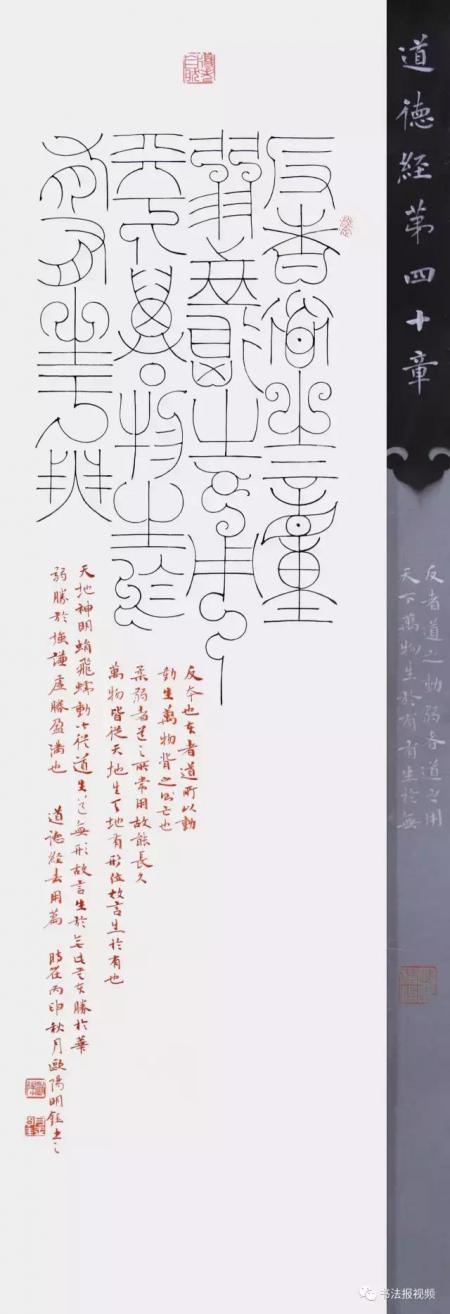 道德經第四十章
反者道之動弱者道之用
天下萬物生於有有生於無
反者道之動
弱者道之用
天下萬物生於
有有生於無
反本也本者道所以動
動生萬物背之則亡也
柔弱者道之所常用故能長久
萬物皆從天地生天地有形位故言生於有也
天地神明蜎飛蠕動皆從道生道無形故言生於無此言本勝於華
弱勝於強謙虛勝盈滿也 道德經去用篇 時在丙申秋月歐陽明書之
书法报视频